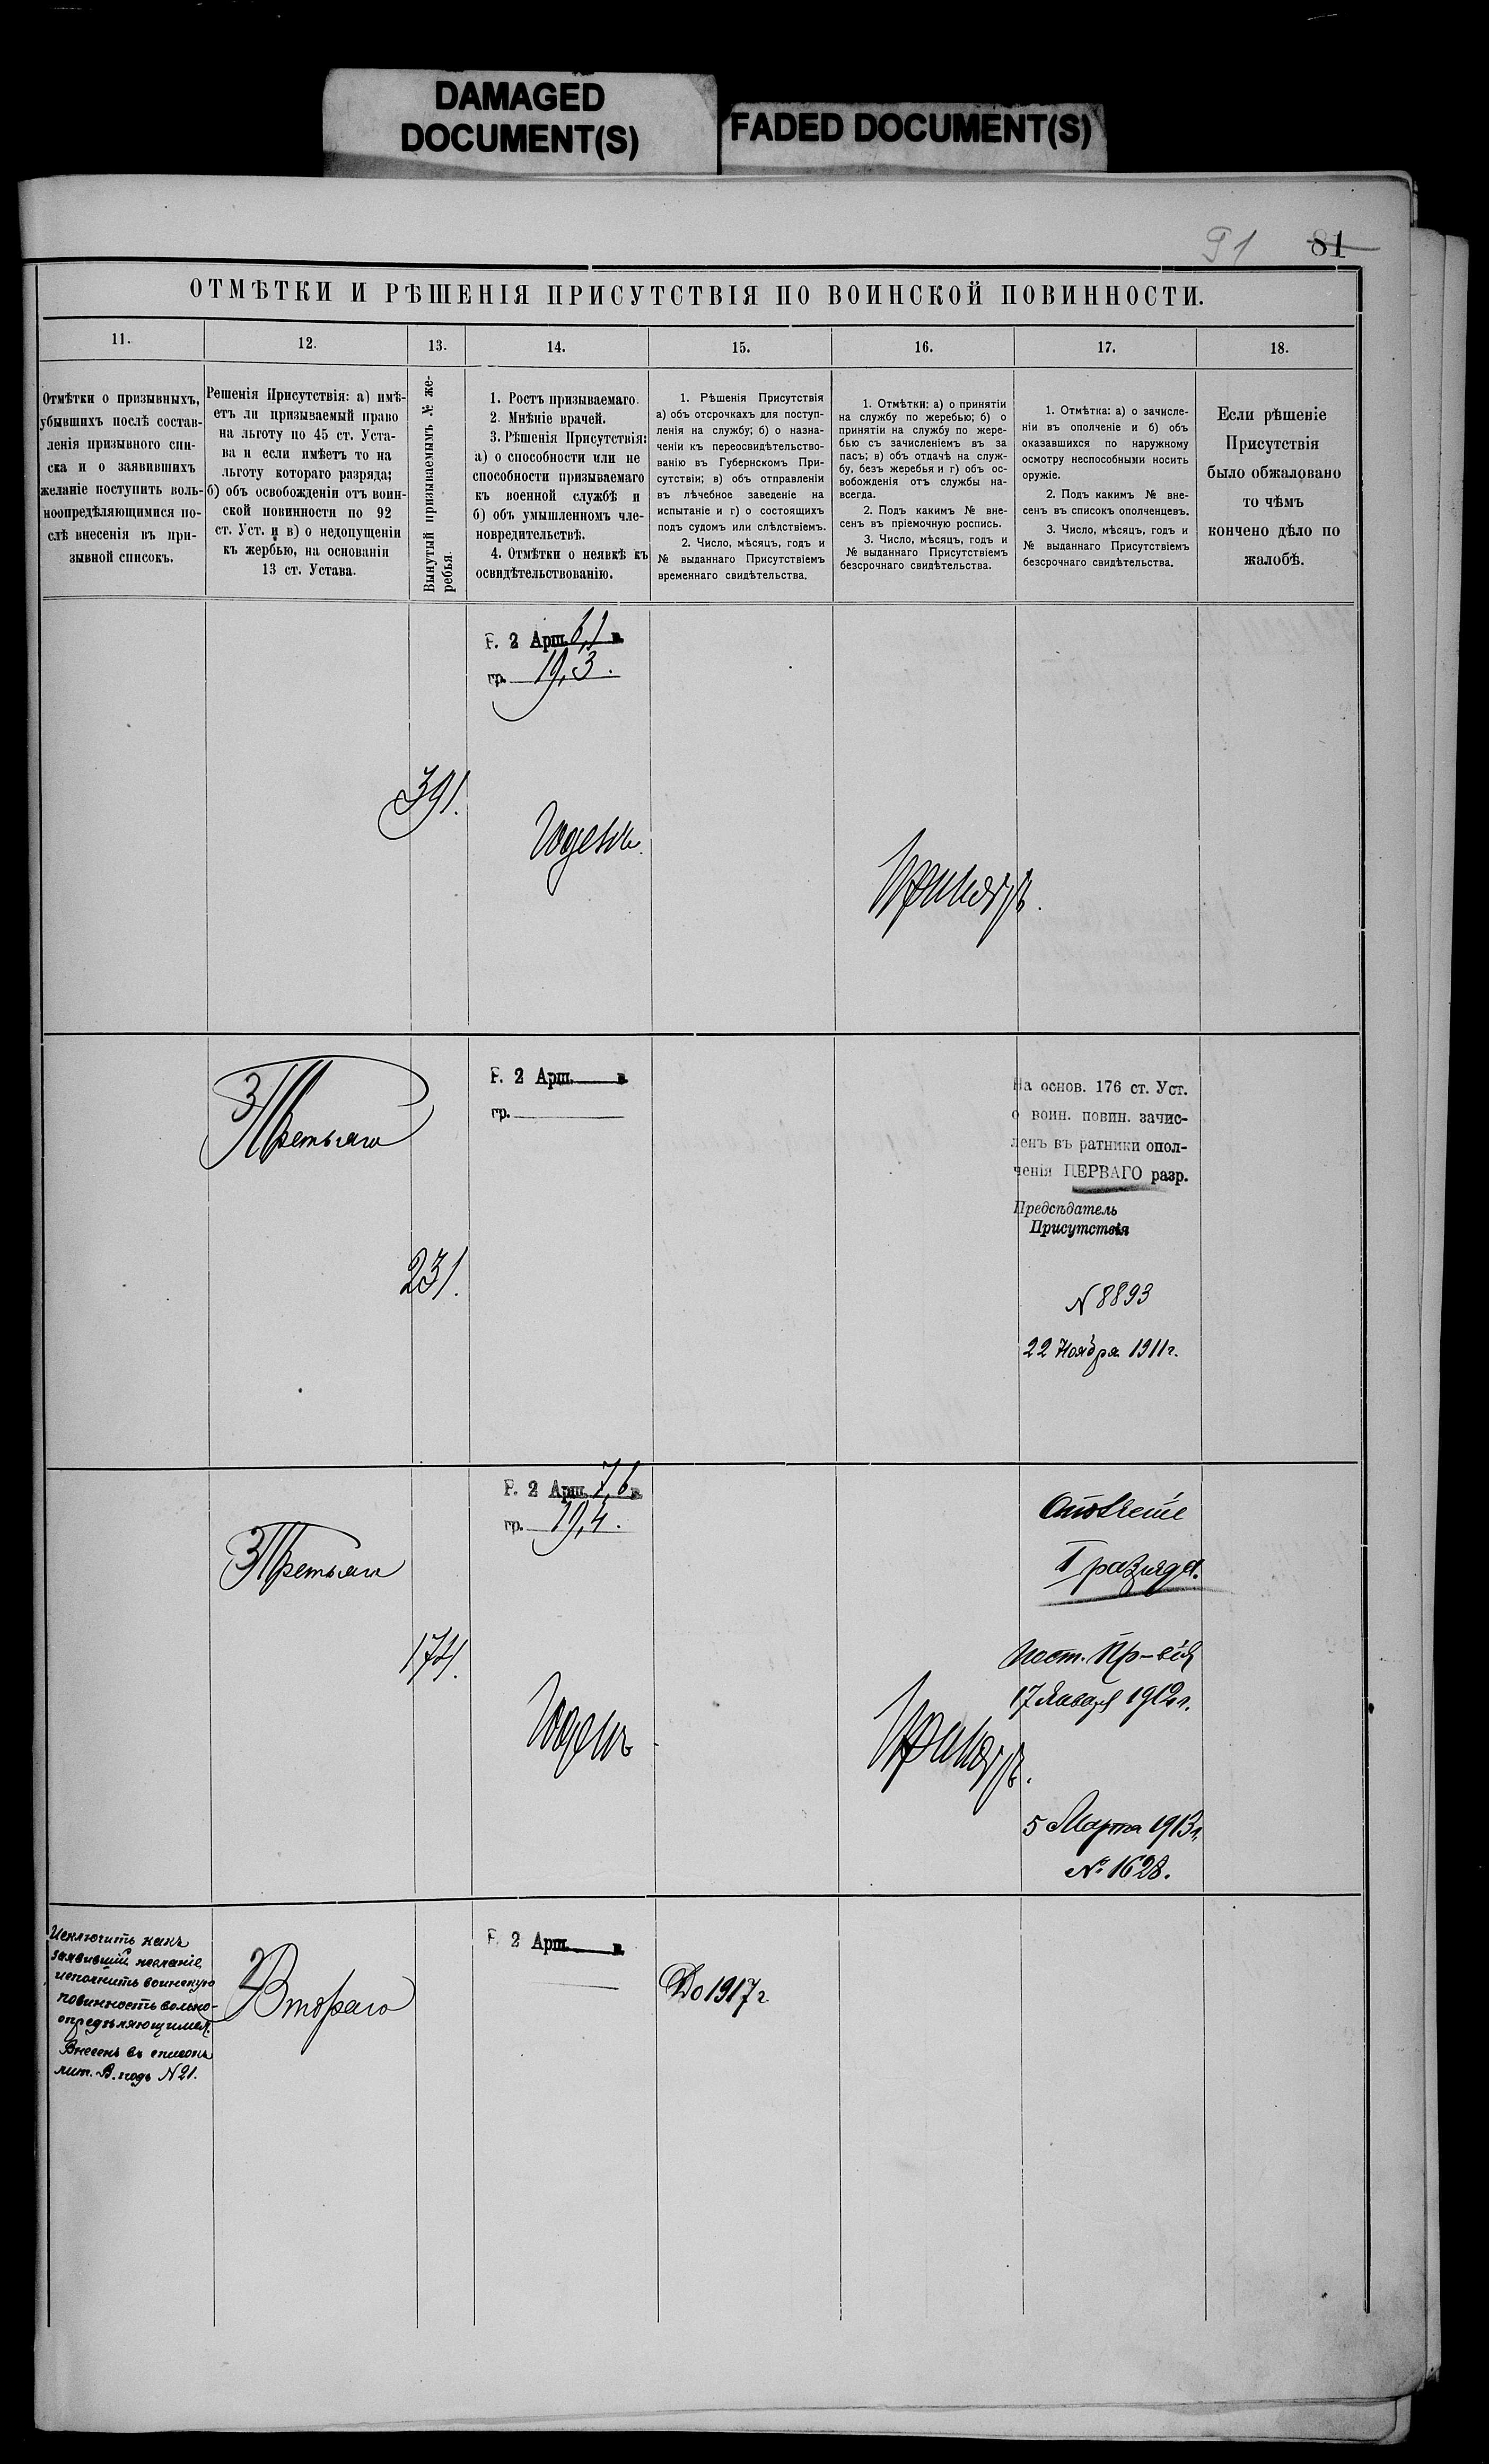 DAMAGED
DOCUMENT(S)
FADED DOCUMENT(S)
81
ОТМѢТКИ И РѢШЕНІЯ ПРИСУТСТВІЯ ПО ВОИНСКОЙ ПОВИННОСТИ.
11.
12.
13.
14.
15.
16.
17.
18.
Отмѣтки о призывныхъ,
убывшихъ послѣ состав-
ленія призывного спи-
ска и о заявившихъ
желаніе поступить воль-
ноопредѣляющимися по-
слѣ внесенія въ при-
зывной списокъ.
Решенія Присутствія: а) имѣ-
етъ ли призываемый право
на льготу по 45 ст. Уста-
ва и если имѣетъ то на
льготу котораго разряда;
б) объ освобожденіи отъ воин-
ской повинности по 92
ст. Уст. и в) о недопущеніи
къ жербью, на основаніи
13 ст. Устава.
Вынутый призываемымъ № же-
ребья.
1. Ростъ призываемаго.
2. Мнѣніе врачей.
3. Рѣшенія Присутствія:
а) о способности или не
способности призываемаго
къ военной службѣ и
б) объ умышленномъ чле-
новредительствѣ.
4. Отмѣтки о неявкѣ къ
освидѣтельствованію.
1. Рѣшенія Присутствія
а) объ отсрочкахъ для поступ-
ленія на службу; б) о назна-
ченіи къ переосвидѣтельство-
ванію въ Губернскомъ При-
сутствіи; в) объ отправленіи
въ лѣчебное заведеніе на
испытаніе и г) о состоящихъ
подъ судомъ или слѣдствіемъ.
2. Число, мѣсяцъ, годъ и
№ выданнаго Присутствіемъ
временнаго свидѣтельства.
1. Отмѣтки: а) о принятіи
на службу по жеребью; б) о
принятіи на службу по жере-
бью съ зачисленіемъ въ за
пасъ; в) объ отдачѣ на служ-
бу, безъ жеребья и г) объ ос-
вобожденія отъ службы на-
всегда.
2. Подъ какимъ № вне-
сенъ въ пріемочную роспись.
3. Число, мѣсяцъ, годъ и
№ выданнаго Присутствіемъ
безсрочнаго свидѣтельства.
1. Отмѣтка: а) о зачисле-
ніи въ ополченіе и б) объ
оказавшихся по наружному
осмотру неспособными носить
оружіе.
2. Подъ какимъ № вне-
сенъ въ списокъ ополченцевъ.
3. Число, мѣсяцъ, годъ и
№ выданнаго Присутствіемъ
безсрочнаго свидѣтельства.
Если рѣшеніе
Присутствія
было обжаловано
то чѣмъ
кончено дѣло по
жалобѣ.
Р. 2 Арш. 6,1 в.
гр. 19,3.
391.
Годенъ.
Принятъ.
3
Третьяго
Р. 2 Арш. в.
гр.
231.
На основ. 176 ст. Уст.
о воин. повин. зачис-
ленъ въ ратники опол-
ченія ПЕРВАГО разр.
Предсѣдатель
Присутствія
N 8893
22 Ноября 1911 г.
3 Третьяго
Р. 2 Арш. 7,6 в.
гр. 19,4.
174.
Годенъ
Принятъ.
Ополченіе
I разряда.
Пост. Пр-вія
17 Января 1912 г.
5 Марта 1913 г.
№ 1628.
Исключить какъ
заявившій желаніе
исполнить воинскую
повинность вольно-
опредѣляющимся.
Внесенъ въ списокъ
лит. В. подъ N 21.
2
Второго
Р. 2 Арш. в.
До 1917 г